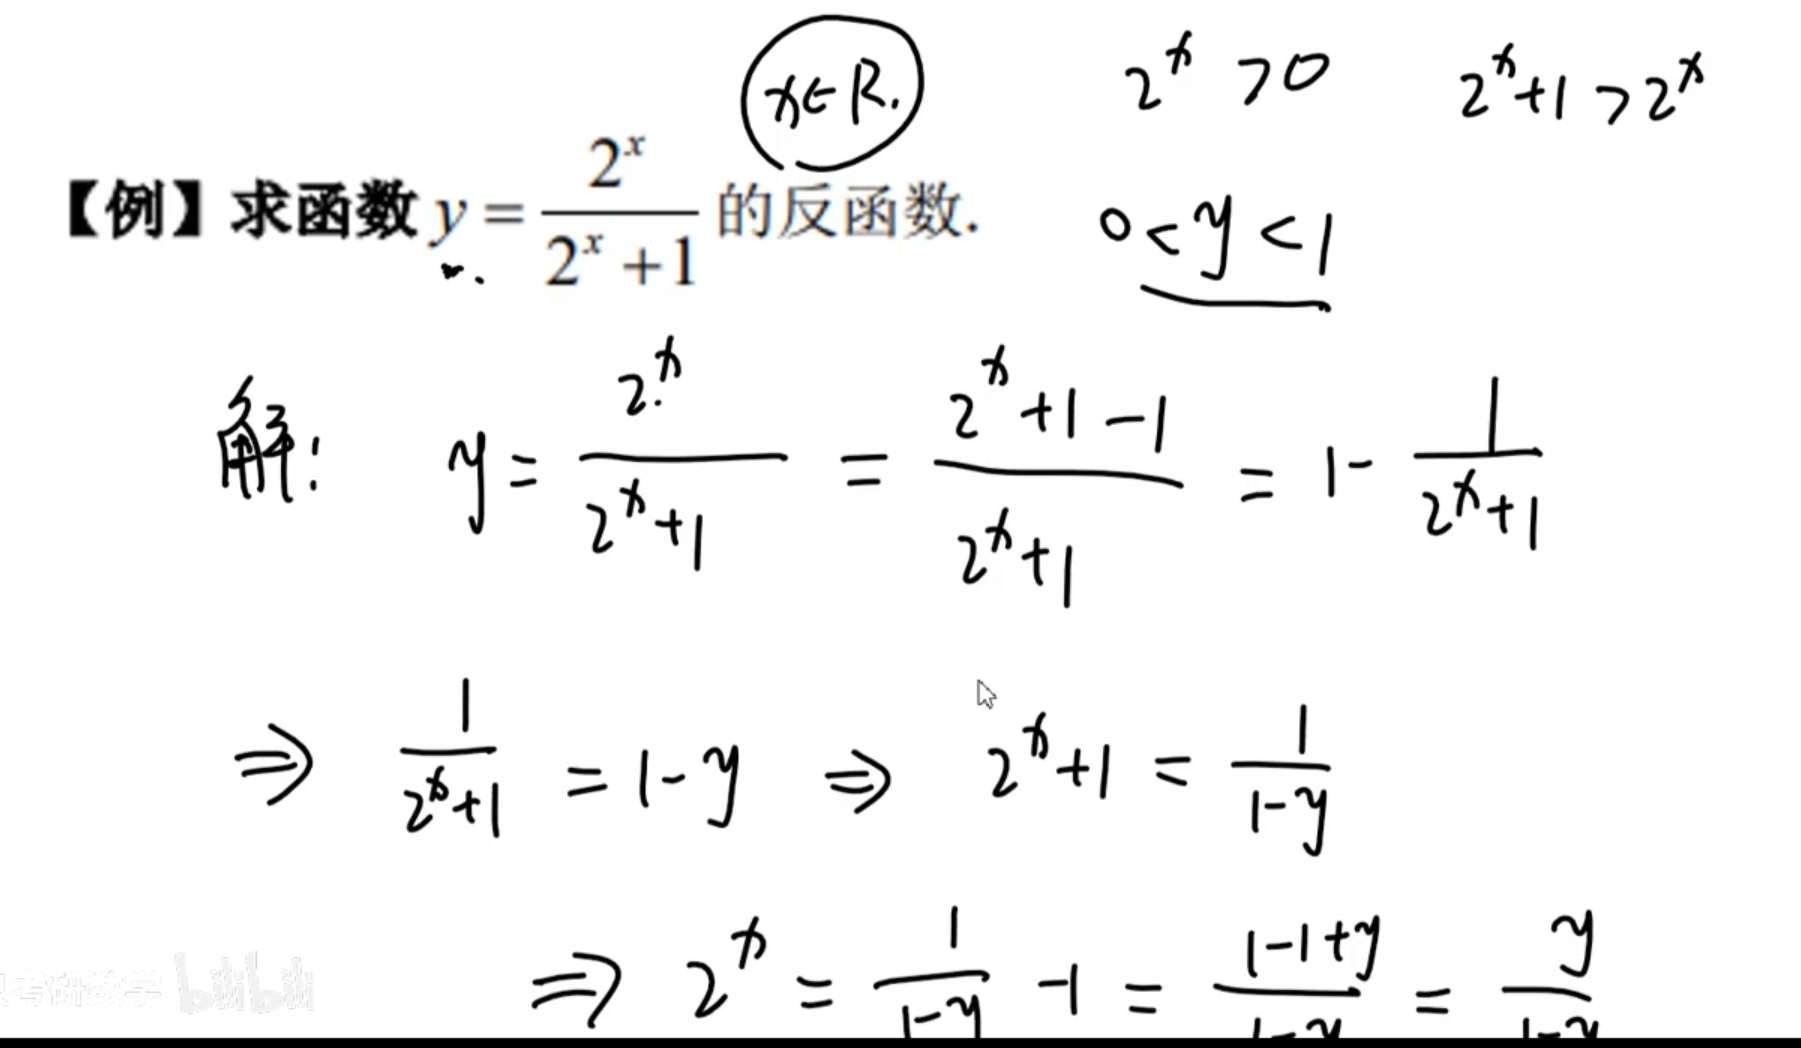 x∈R.
2^x >0   2^x+1 > 2^x
【例】求函数 y = 2^x / (2^x + 1) 的反函数.
0 < y < 1
解: y = 2^x / (2^x+1) = (2^x+1-1) / (2^x+1) = 1 - 1 / (2^x+1)
⇒ 1 / (2^x+1) = 1-y ⇒ 2^x+1 = 1 / (1-y)
⇒ 2^x = 1 / (1-y) -1 = (1-1+y) / (1-y) = y / (1-y)
考研数学 bilibili